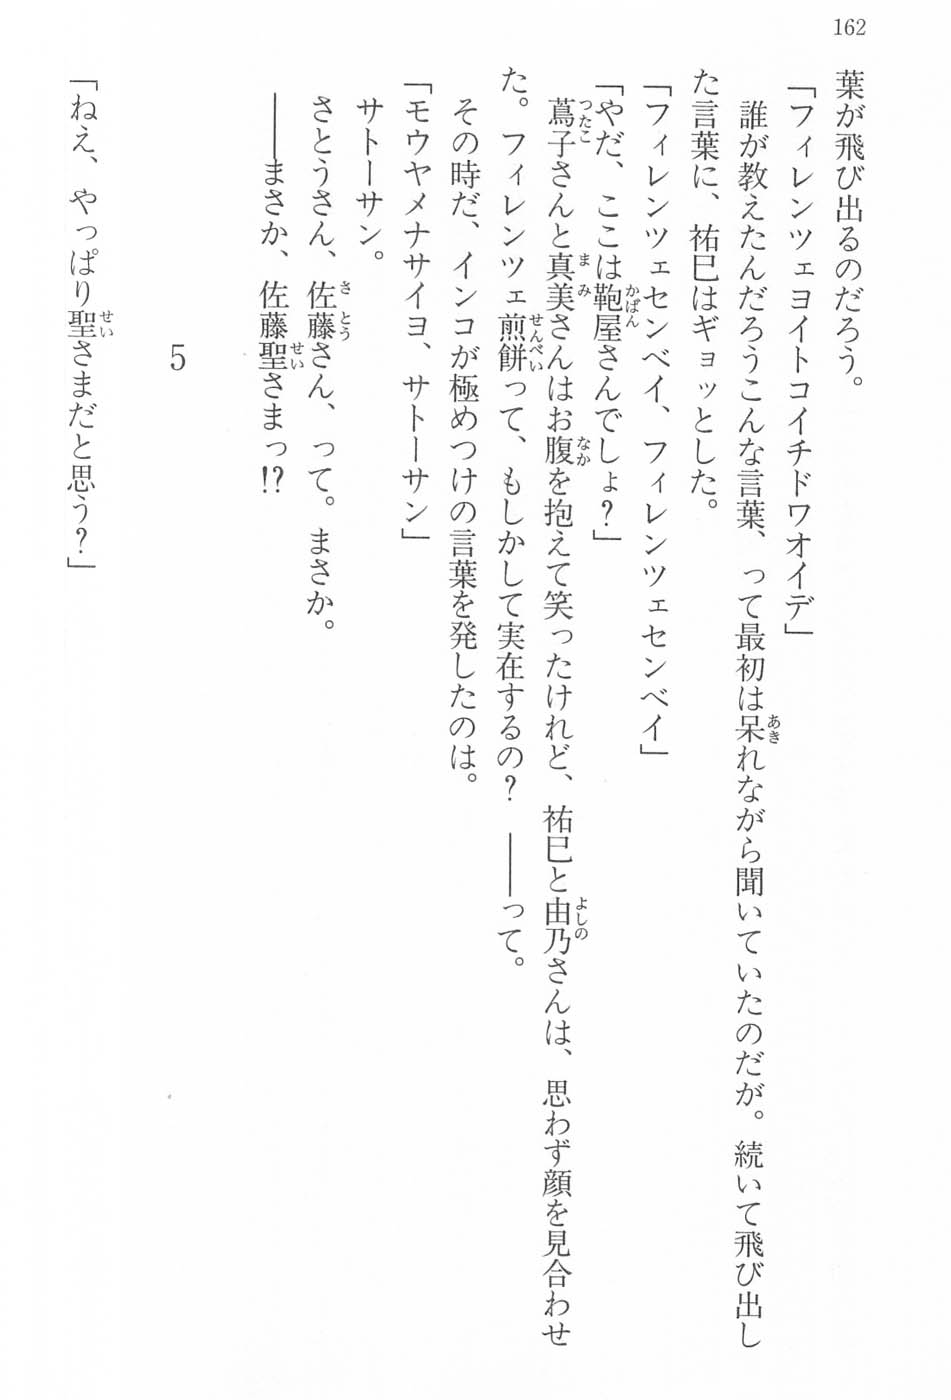 162
葉が飛び出るのだろう。
「フィレンツェヨイトコイチドワオイデ」
誰が教えたんだろうこんな言葉、って最初は呆れながら聞いていたのだが。続いて飛び出し
た言葉に、祐巳はギョッとした。
「フィレンツェセンベイ、フィレンツェセンベイ」
「やだ、ここは鞄屋さんでしょ？」
蔦子さんと真美さんはお腹を抱えて笑ったけれど、祐巳と由乃さんは、思わず顔を見合わせ
た。フィレンツェ煎餅って、もしかして実在するの？　――って。
その時だ、インコが極めつけの言葉を発したのは。
「モウヤメナサイヨ、サトーサン」
サトーサン。
さとうさん、佐藤さん、って。まさか。
――まさか、佐藤聖さまっ!?
5
「ねえ、やっぱり聖さまだと思う？」